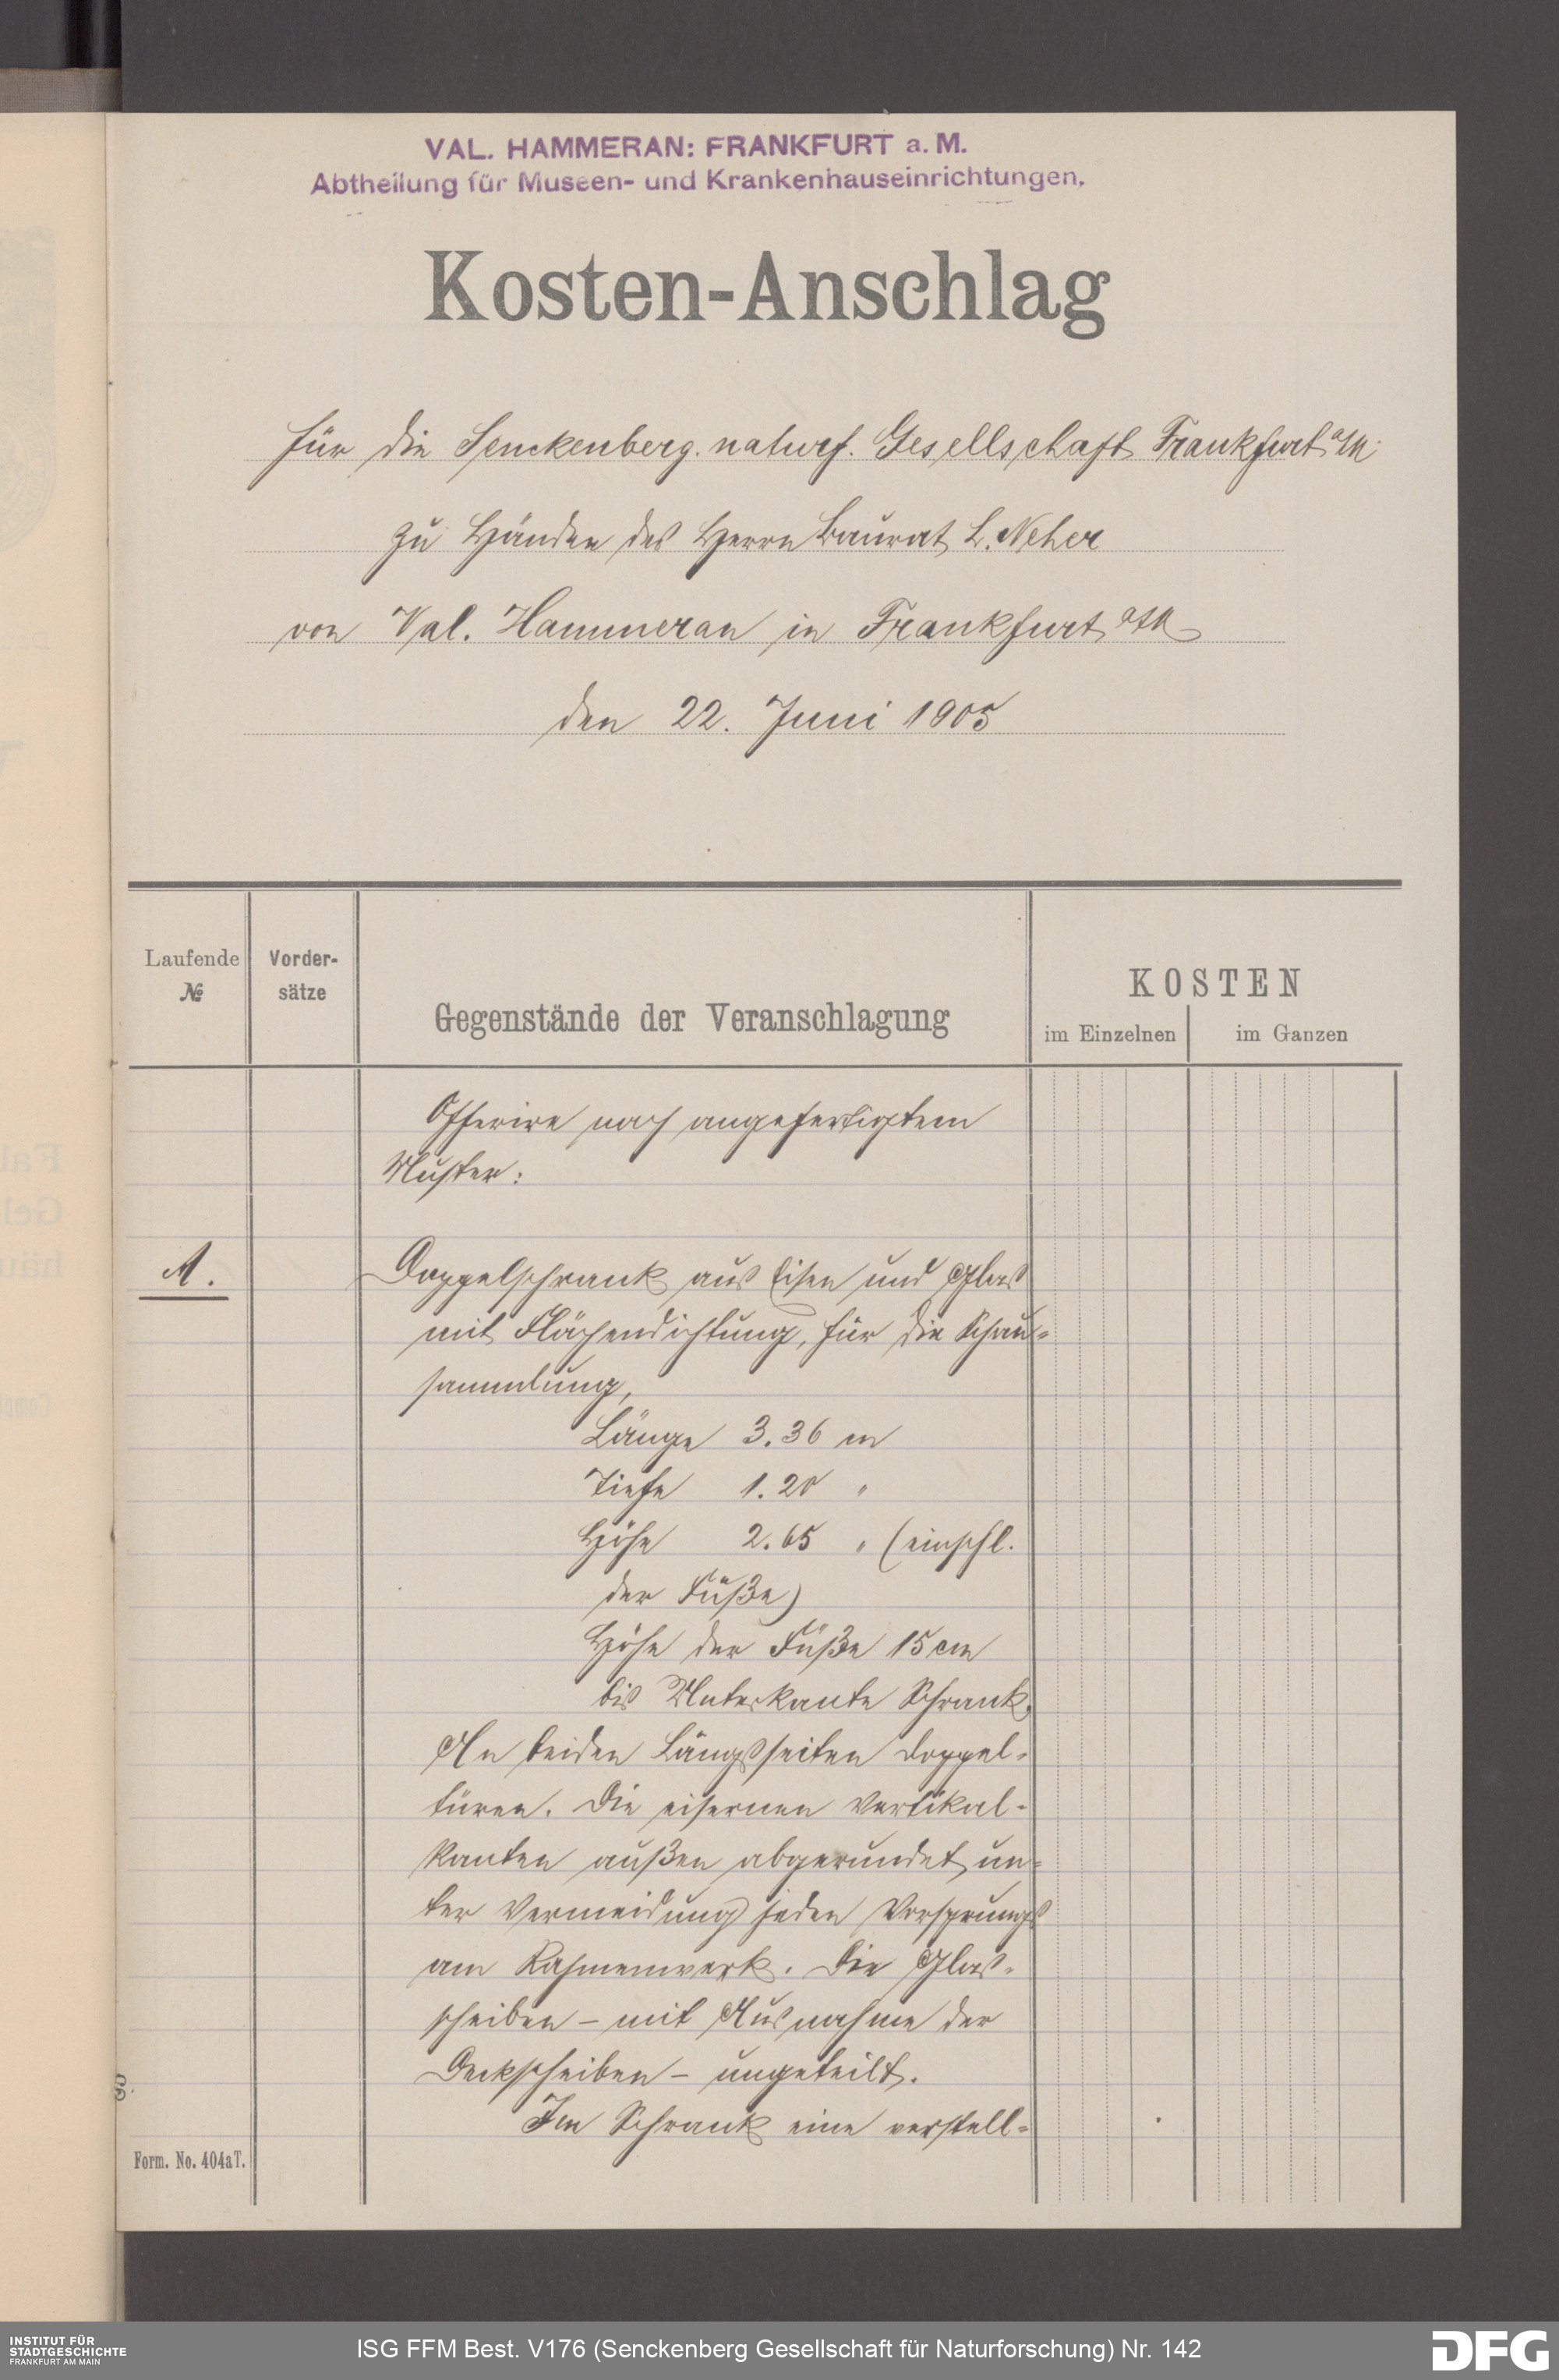 VAL. HAMMERAN: FRANKFURT a. M.
Abtheilung für Museen- und Krankenhauseinrichtungen.
Kosten-Anschlag
für die Senckenberg. naturf. Gesellschaft Frankfurt a/M.
zu Händen des Herrn Baurat L. Neher
von Val. Hammeran in Frankfurt a/M
den 22. Juni 1905
Laufende
№
Vorder-
sätze
Gegenstände der Veranschlagung
KOSTEN
im Einzelnen
im Ganzen
Offerire nach angefertigtem
Muster:
A. Doppelschrank aus Eisen und Glas
mit Flächendichtung, für die Schau-
sammlung,
Länge 3.36 m
Tiefe 1.20 "
Höhe 2.65 " (einschl.
der Füße)
Höhe der Füße 15 cm
bis Unterkante Schrank.
An beiden Längsseiten Doppel-
türen. Die eisernen Vertikal-
kanten außen abgerundet, un-
ter Vermeidung jeden Vorsprungs
am Rahmenwerk. Die Glas-
scheiben – mit Ausnahme der
Deckscheiben – ungeteilt.
Im Schrank eine verstell-
Form. No. 404aT.
INSTITUT FÜR
STADTGESCHICHTE
FRANKFURT AM MAIN
ISG FFM Best. V176 (Senckenberg Gesellschaft für Naturforschung) Nr. 142
DFG